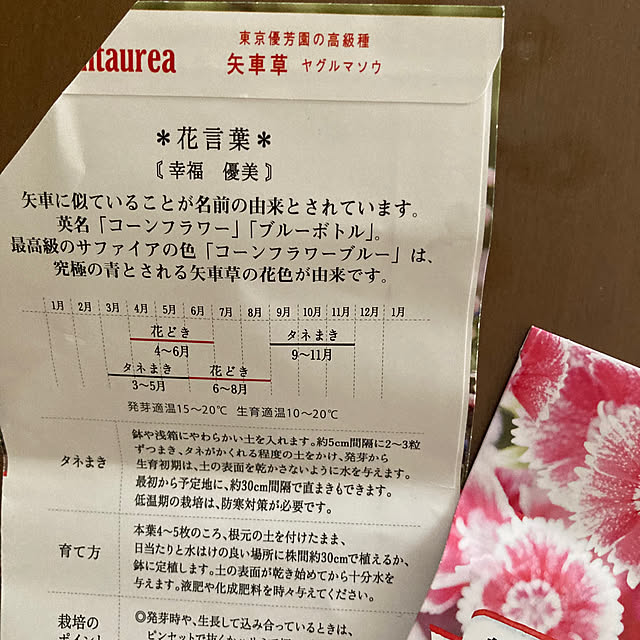 東京優芳園の高級種
ntaurea 矢車草 ヤグルマソウ
＊花言葉＊
〘幸福 優美〙
矢車に似ていることが名前の由来とされています。
英名「コーンフラワー」「ブルーボトル」。
最高級のサファイアの色「コーンフラワーブルー」は、
究極の青とされる矢車草の花色が由来です。
1月 2月 3月 4月 5月 6月 7月 8月 9月 10月 11月 12月 1月
花どき タネまき
4〜6月 9〜11月
タネまき 花どき
3〜5月 6〜8月
発芽適温15〜20℃ 生育適温10〜20℃
タネまき
鉢や浅箱にやわらかい土を入れます。約5cm間隔に2〜3粒
ずつまき、タネがかくれる程度の土をかけ、発芽から
生育初期は、土の表面を乾かさないように水を与えます。
最初から予定地に、約30cm間隔で直まきもできます。
低温期の栽培は、防寒対策が必要です。
育て方
本葉4〜5枚のころ、根元の土を付けたまま、
日当たりと水はけの良い場所に株間約30cmで植えるか、
鉢に定植します。土の表面が乾き始めてから十分水を
与えます。液肥や化成肥料を時々与えてください。
栽培の
ポイント
◎発芽時や、生長して込み合っているときは、